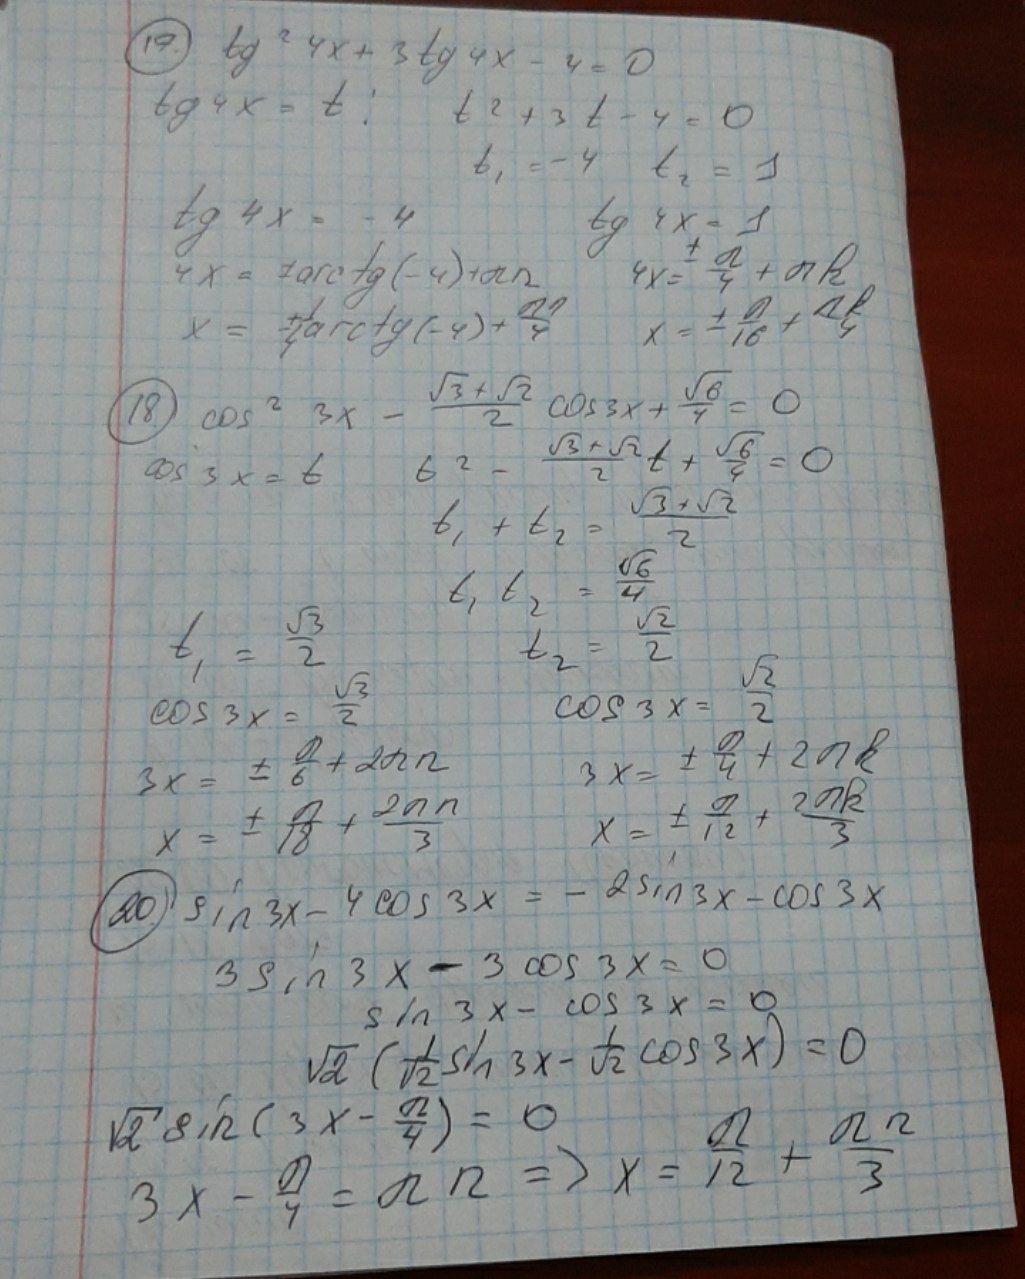 19. tg² 4x + 3tg 4x - 4 = 0
tg 4x = t; t² + 3t - 4 = 0
t₁ = -4 t₂ = 1
tg 4x = -4 tg 4x = 1
4x = ±arctg(-4) + πn 4x = ± π/4 + πk
x = ±1/4 arctg(-4) + πn/4 x = ± π/16 + πk/4
18 cos² 3x - (√3 + √2)/2 cos 3x + √6/4 = 0
cos 3x = t t² - (√3 + √2)/2 t + √6/4 = 0
t₁ + t₂ = (√3 + √2)/2
t₁ t₂ = √6/4
t₁ = √3/2 t₂ = √2/2
cos 3x = √3/2 cos 3x = √2/2
3x = ± π/6 + 2πn 3x = ± π/4 + 2πk
x = ± π/18 + 2πn/3 x = ± π/12 + 2πk/3
20 sin 3x - 4 cos 3x = - 2 sin 3x - cos 3x
3 sin 3x - 3 cos 3x = 0
sin 3x - cos 3x = 0
√2 (1/√2 sin 3x - 1/√2 cos 3x) = 0
√2 sin (3x - π/4) = 0
3x - π/4 = πn => x = π/12 + πn/3